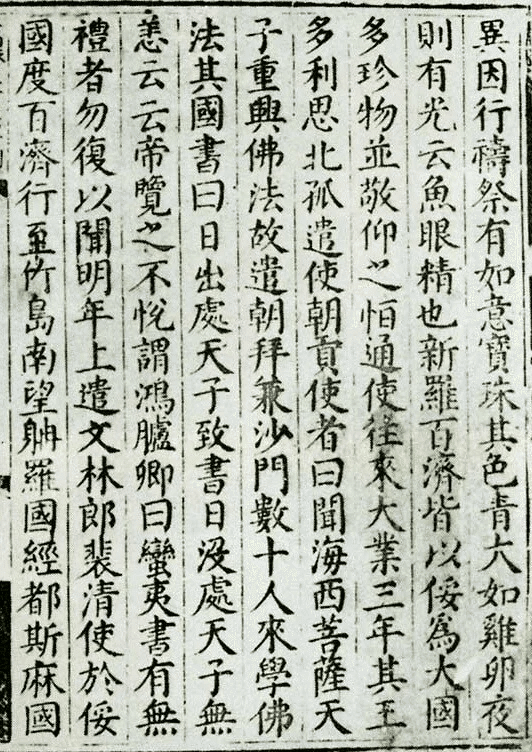 異因行禱祭有如意寶珠其色青大如雞卵夜
則有光云魚眼精也新羅百濟皆以俀爲大國
多珍物並敬仰之恒通使往來大業三年其王
多利思北孤遣使朝貢使者曰聞海西菩薩天
子重興佛法故遣朝拜兼沙門數十人來學佛
法其國書曰日出處天子致書日沒處天子無
恙云云帝覽之不悅謂鴻臚卿曰蠻夷書有無
禮者勿復以聞明年上遣文林郎裴清使於俀
國度百濟行至竹島南望𨈭羅國經都斯麻國